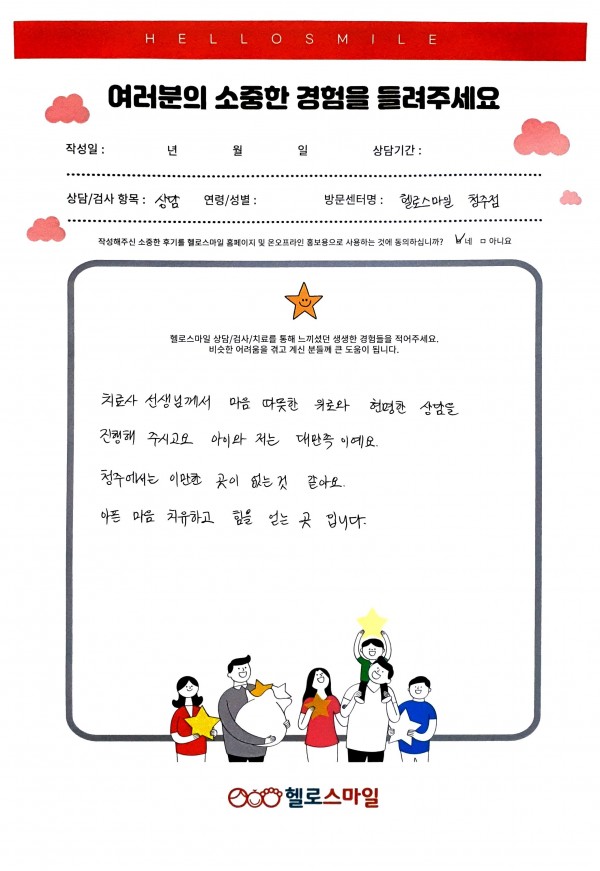 HELLOSMILE
여러분의 소중한 경험을 들려주세요
작성일 : 년 월 일 상담기간 :
상담/검사 항목 : 상담 연령/성별 : 방문센터명 : 헬로스마일 청주점
작성해주신 소중한 후기를 헬로스마일 홈페이지 및 온오프라인 홍보용으로 사용하는 것에 동의하십니까? ☑네 □아니요
헬로스마일 상담/검사/치료를 통해 느끼셨던 생생한 경험들을 적어주세요.
비슷한 어려움을 겪고 계신 분들께 큰 도움이 됩니다.
치료사 선생님께서 마음 따뜻한 위로와 현명한 상담을
진행해 주시고요 아이와 저는 대만족이예요.
청주에서는 이만한 곳이 없는것 같아요.
아픈 마음 치유하고 힘을 얻는 곳 입니다.
헬로스마일